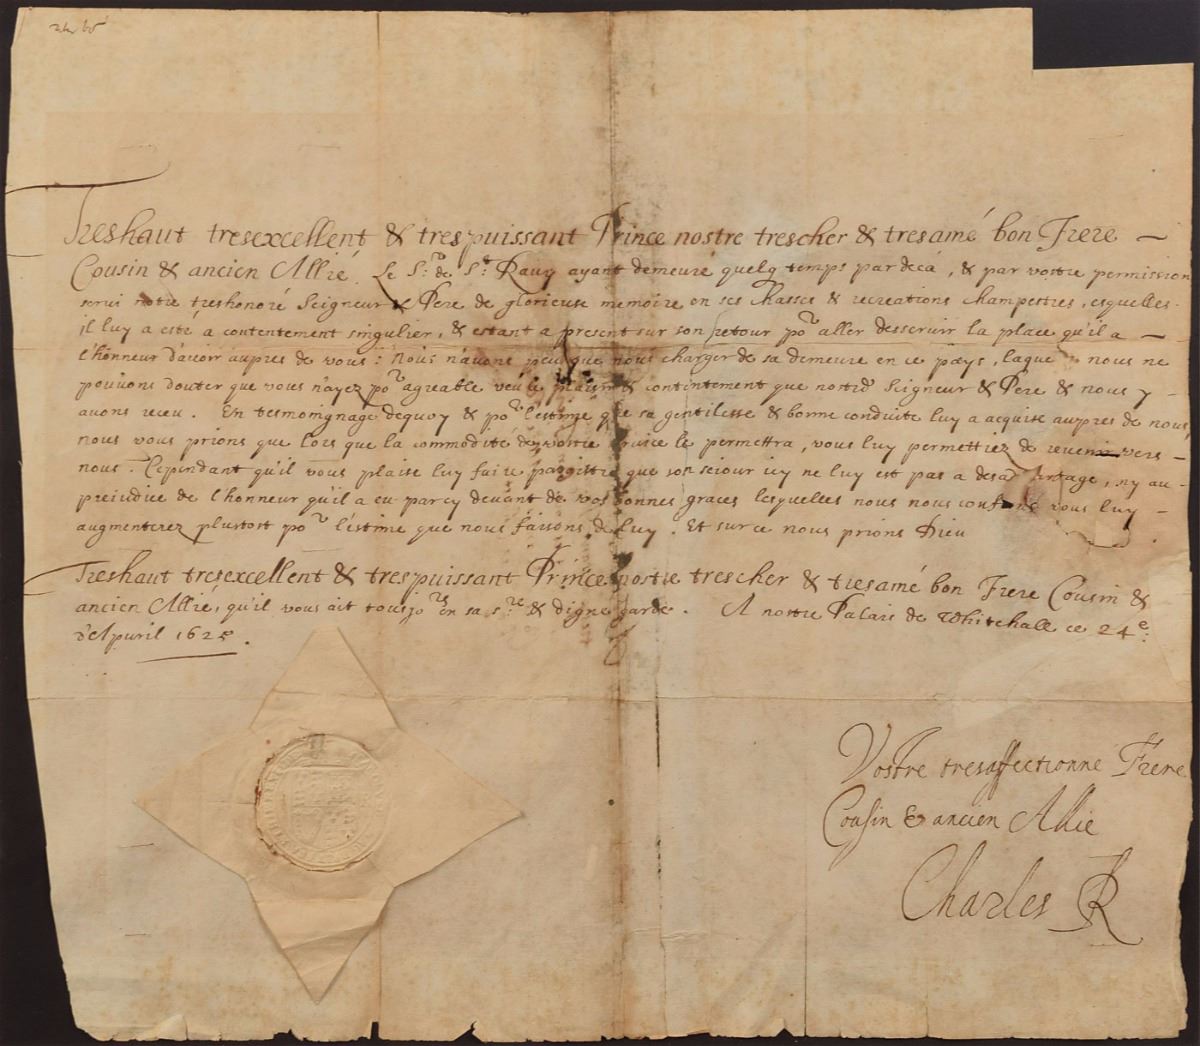 Treshaut tresexcellent & trespuissant Prince nostre trescher & tresamé bon Frere —
Cousin & ancien Allié. Le Sr. de St. Ravy ayant demeuré quelq temps par deca, & par vostre permission
servi notre treshonoré Seigneur & Pere de glorieuse memoire en ses Chasses & recreations Champestres, esquelles
il luy a esté a contentement singulier, & estant a present sur son retour por aller desservir la place qu'il a —
l'honneur d'avoir aupres de vous: Nous n'avons peu que nous charger de sa demeure en ce païs, laque nous ne
pouvons douter que vous n'ayez por agreable veu le plaisir & contintement que nostre Seigneur & Pere & nous y -
avons receu. En tesmoignage dequoy & por l'estime que sa gentilesse & bonne conduite luy a acquise aupres de nous,
nous vous prions que lors que la commodité de vostre service le permettra, vous luy permettiez de revenir vers -
nous. Cependant qu'il vous plaise luy faire paroistre que son sejour icy ne luy est pas a desadvantage, ny au -
prejudice de l'honneur qu'il a eu par cy devant de vos bonnes graces lesquelles nous nous confions vous luy -
augmenterez plustost por l'estime que nous faisons de luy. Et sur ce nous prions Dieu
Treshaut tresexcellent & trespuissant Prince nostre trescher & tresamé bon Frere Cousin &
ancien Allié, qu'il vous ait tousjors en sa ste & digne garde. A nostre Palais de Whitehall ce 24e.
d'Apuril 1625.
Vostre tresaffectionné Frere
Cousin & ancien Allie
Charles R